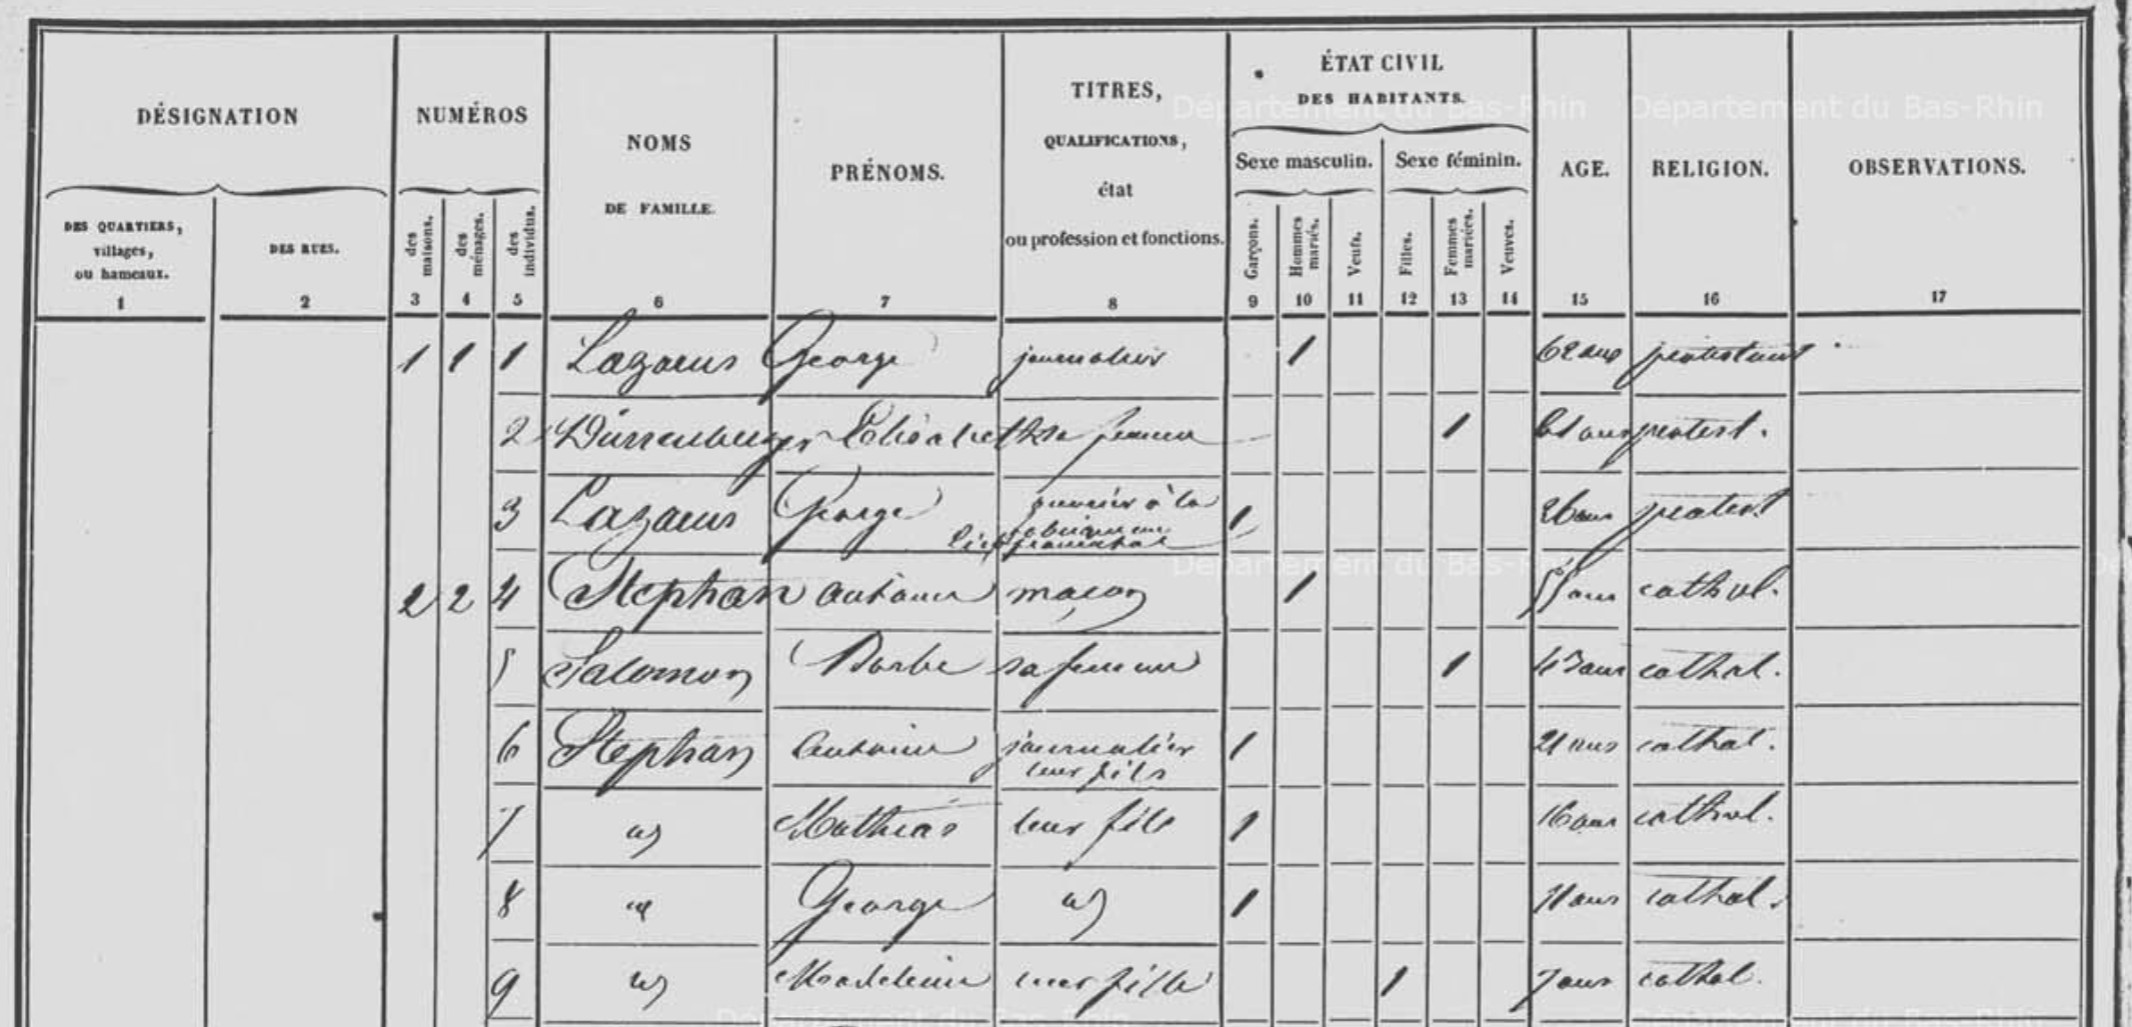 DÉSIGNATION
DES QUARTIERS,
villages,
ou hameaux.
1
DES RUES.
2
NUMÉROS
des maisons.
3
des ménages.
4
des individus.
5
NOMS
DE FAMILLE.
6
PRÉNOMS.
7
TITRES,
QUALIFICATIONS,
état
ou profession et fonctions.
8
ÉTAT CIVIL
DES HABITANTS.
Sexe masculin.
Garçons.
9
Hommes mariés.
10
Veufs.
11
Sexe féminin.
Filles.
12
Femmes mariées.
13
Veuves.
14
AGE.
15
RELIGION.
16
OBSERVATIONS.
17
1 1 1 Lazarus George journalier 1 62 ans protestant
2 Dürrenberger Elisabeth sa femme 1 61 ans protest.
3 Lazarus George ouvrier à la
1 26 ans protest
2 2 4 Stephan Antoine maçon 1 55 ans cathol.
5 Salomon Barbe sa femme 1 47 ans cathol.
6 Stephan Antoine journalier 1 21 ans cathol.
leur fils
7 id Mathias leur fils 1 16 ans cathol.
8 id George id 1 11 ans cathol.
9 id Madeleine leur fille 1 7 ans cathol.
Département du Bas-Rhin
Département du Bas-Rhin
Département du Bas-Rhin
Département du Bas-Rhin
Département du Bas-Rhin